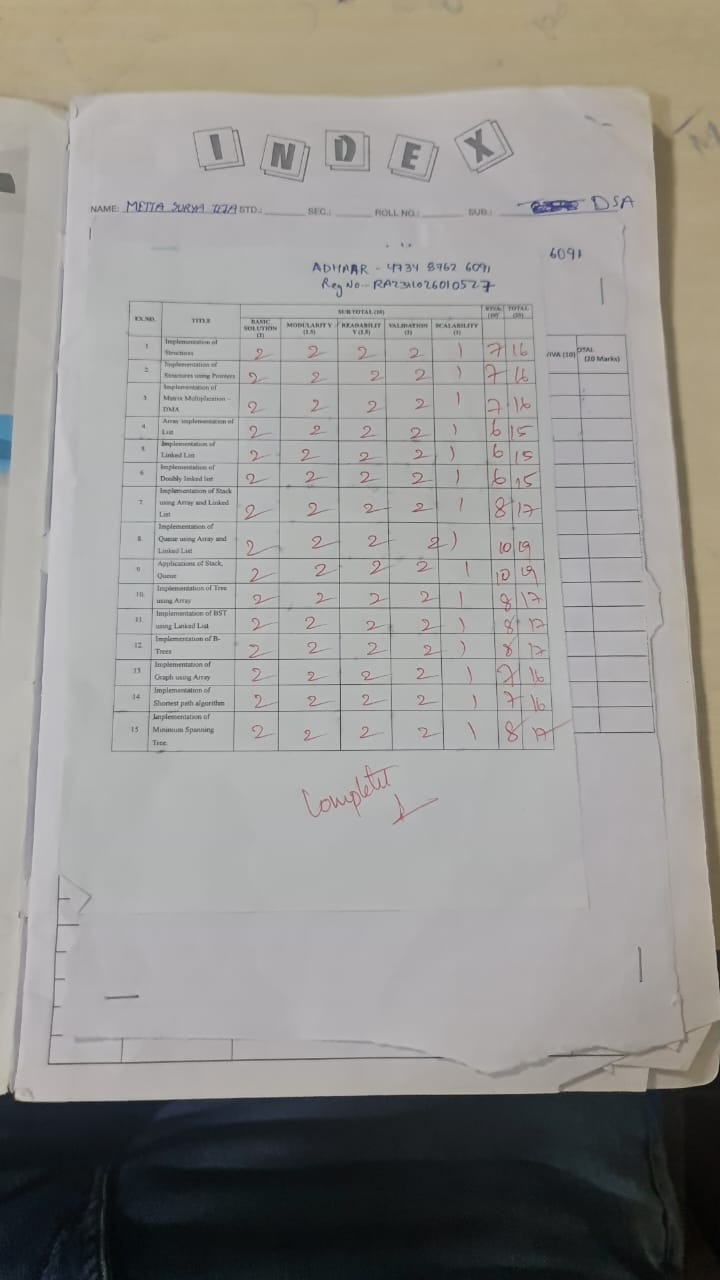 INDEX
NAME: METTA SURYA TEJA STD.: SEC.: ROLL NO.: SUB.: DSA
6091
ADHAAR - 4734 8762 6091
Reg No:- RA2311026010527
EX.NO. TITLE SUB TOTAL (10) VIVA (10) TOTAL (20)
BASIC SOLUTION MODULARITY READABILITY VALIDATION SCALABILITY
VIVA (10) OTAL (20 Marks)
1 Implementation of Structures 2 2 2 2 1 7 16
2 Implementation of Structures using Pointers 2 2 2 2 1 7 16
3 Implementation of Matrix Multiplication – DMA 2 2 2 2 1 7 16
4 Array implementation of List 2 2 2 2 1 6 15
5 Implementation of Linked List 2 2 2 2 1 6 15
6 Implementation of Doubly linked list 2 2 2 2 1 6 15
7. Implementation of Stack using Array and Linked List 2 2 2 2 1 8 17
8. Implementation of Queue using Array and Linked List 2 2 2 2 1 10 19
9. Applications of Stack, Queue 2 2 2 2 1 10 19
10. Implementation of Tree using Array 2 2 2 2 1 8 17
11. Implementation of BST using Linked List 2 2 2 2 1 8 17
12. Implementation of B-Trees 2 2 2 2 1 8 17
13 Implementation of Graph using Array 2 2 2 2 1 7 16
14 Implementation of Shortest path algorithm 2 2 2 2 1 7 16
15 Implementation of Minimum Spanning Tree 2 2 2 2 1 8 17